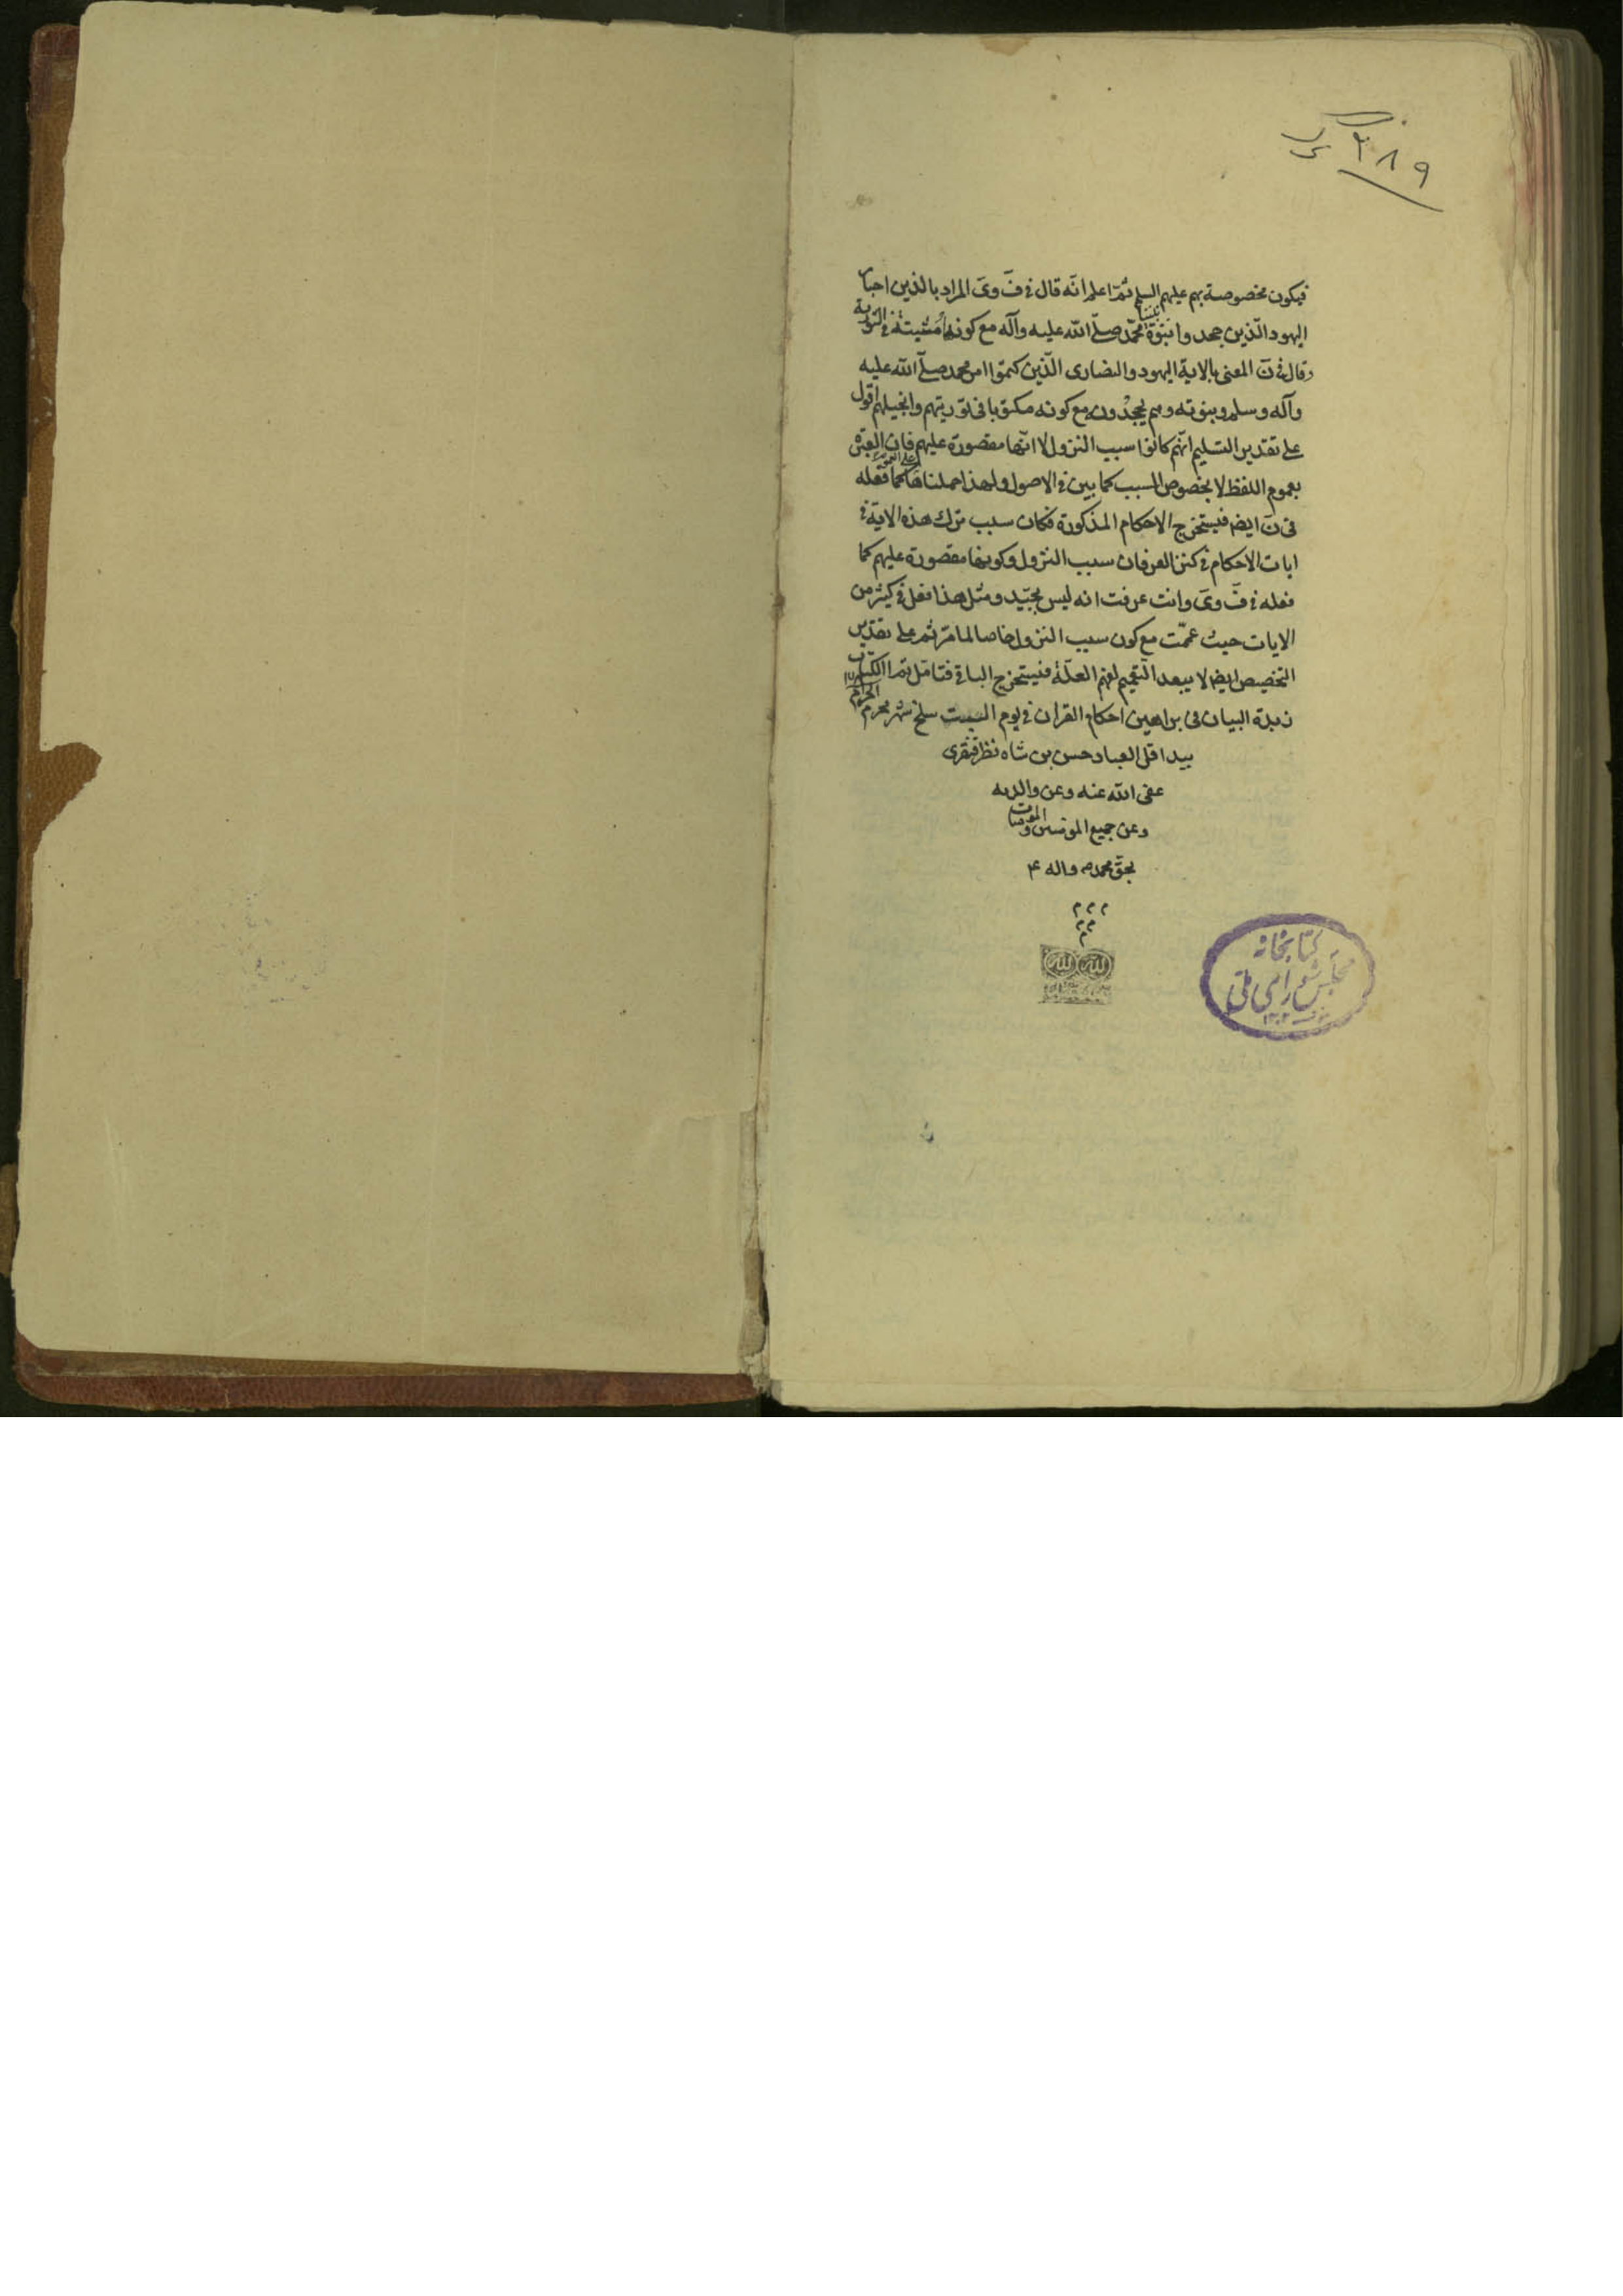 ۳۸۹
فيكون مخصوصة بهم عليهم السلم ثمّ اعلم انّه قال فى قَ وىَ المراد بالذين احبار
اليهود الّذين جحدوا نبوّة نبيّنا محمّد صلّى الله عليه وآله مع كونها مثبتة فى التورية
وقال فى نَ المعنى بالاية اليهود والنصارى الّذين كتموا امر محمد صلّى الله عليه
وآله وسلم ونبوته وهم يجدونه مع كونه مكتوبا فى توريتهم وانجيلهم اقول
على تقدير التسليم انّهم كانوا سبب النزول لا انّها مقصورة عليهم فان العبرة
بعموم اللفظ لا بخصوص السبب كما بين فى الاصول ولهذا حملناها على العموم كما فعله
فى نَ ايضا فيستخرج الاحكام المذكورة فكان سبب ترك هذه الاية فى
ايات الاحكام فى كنز العرفان سبب النزول وكونها مقصورة عليهم كما
فعله فى قَ وىَ وانت عرفت انه ليس بجيّد ومثل هذا فعل فى كثير من
الايات حيث عمّمت مع كون سبب النزول خاصا لما مرّ ثم على تقدير
التخصيص ايضا لا يبعد التعميم لفهم العلّة فيستخرج الباقى فتامّل تم الكتاب
زبدة البيان فى براهين احكام القران فى يوم السبت سلخ شهر محرم الحرام
بيد اقل العباد حسن بن شاه نظر
عفى الله عنه وعن والديه
وعن جميع المومنين والمومنات
بحق محمد ص واله ع
م م م
م م
م
كتابخانه
مجلس شوراى ملى